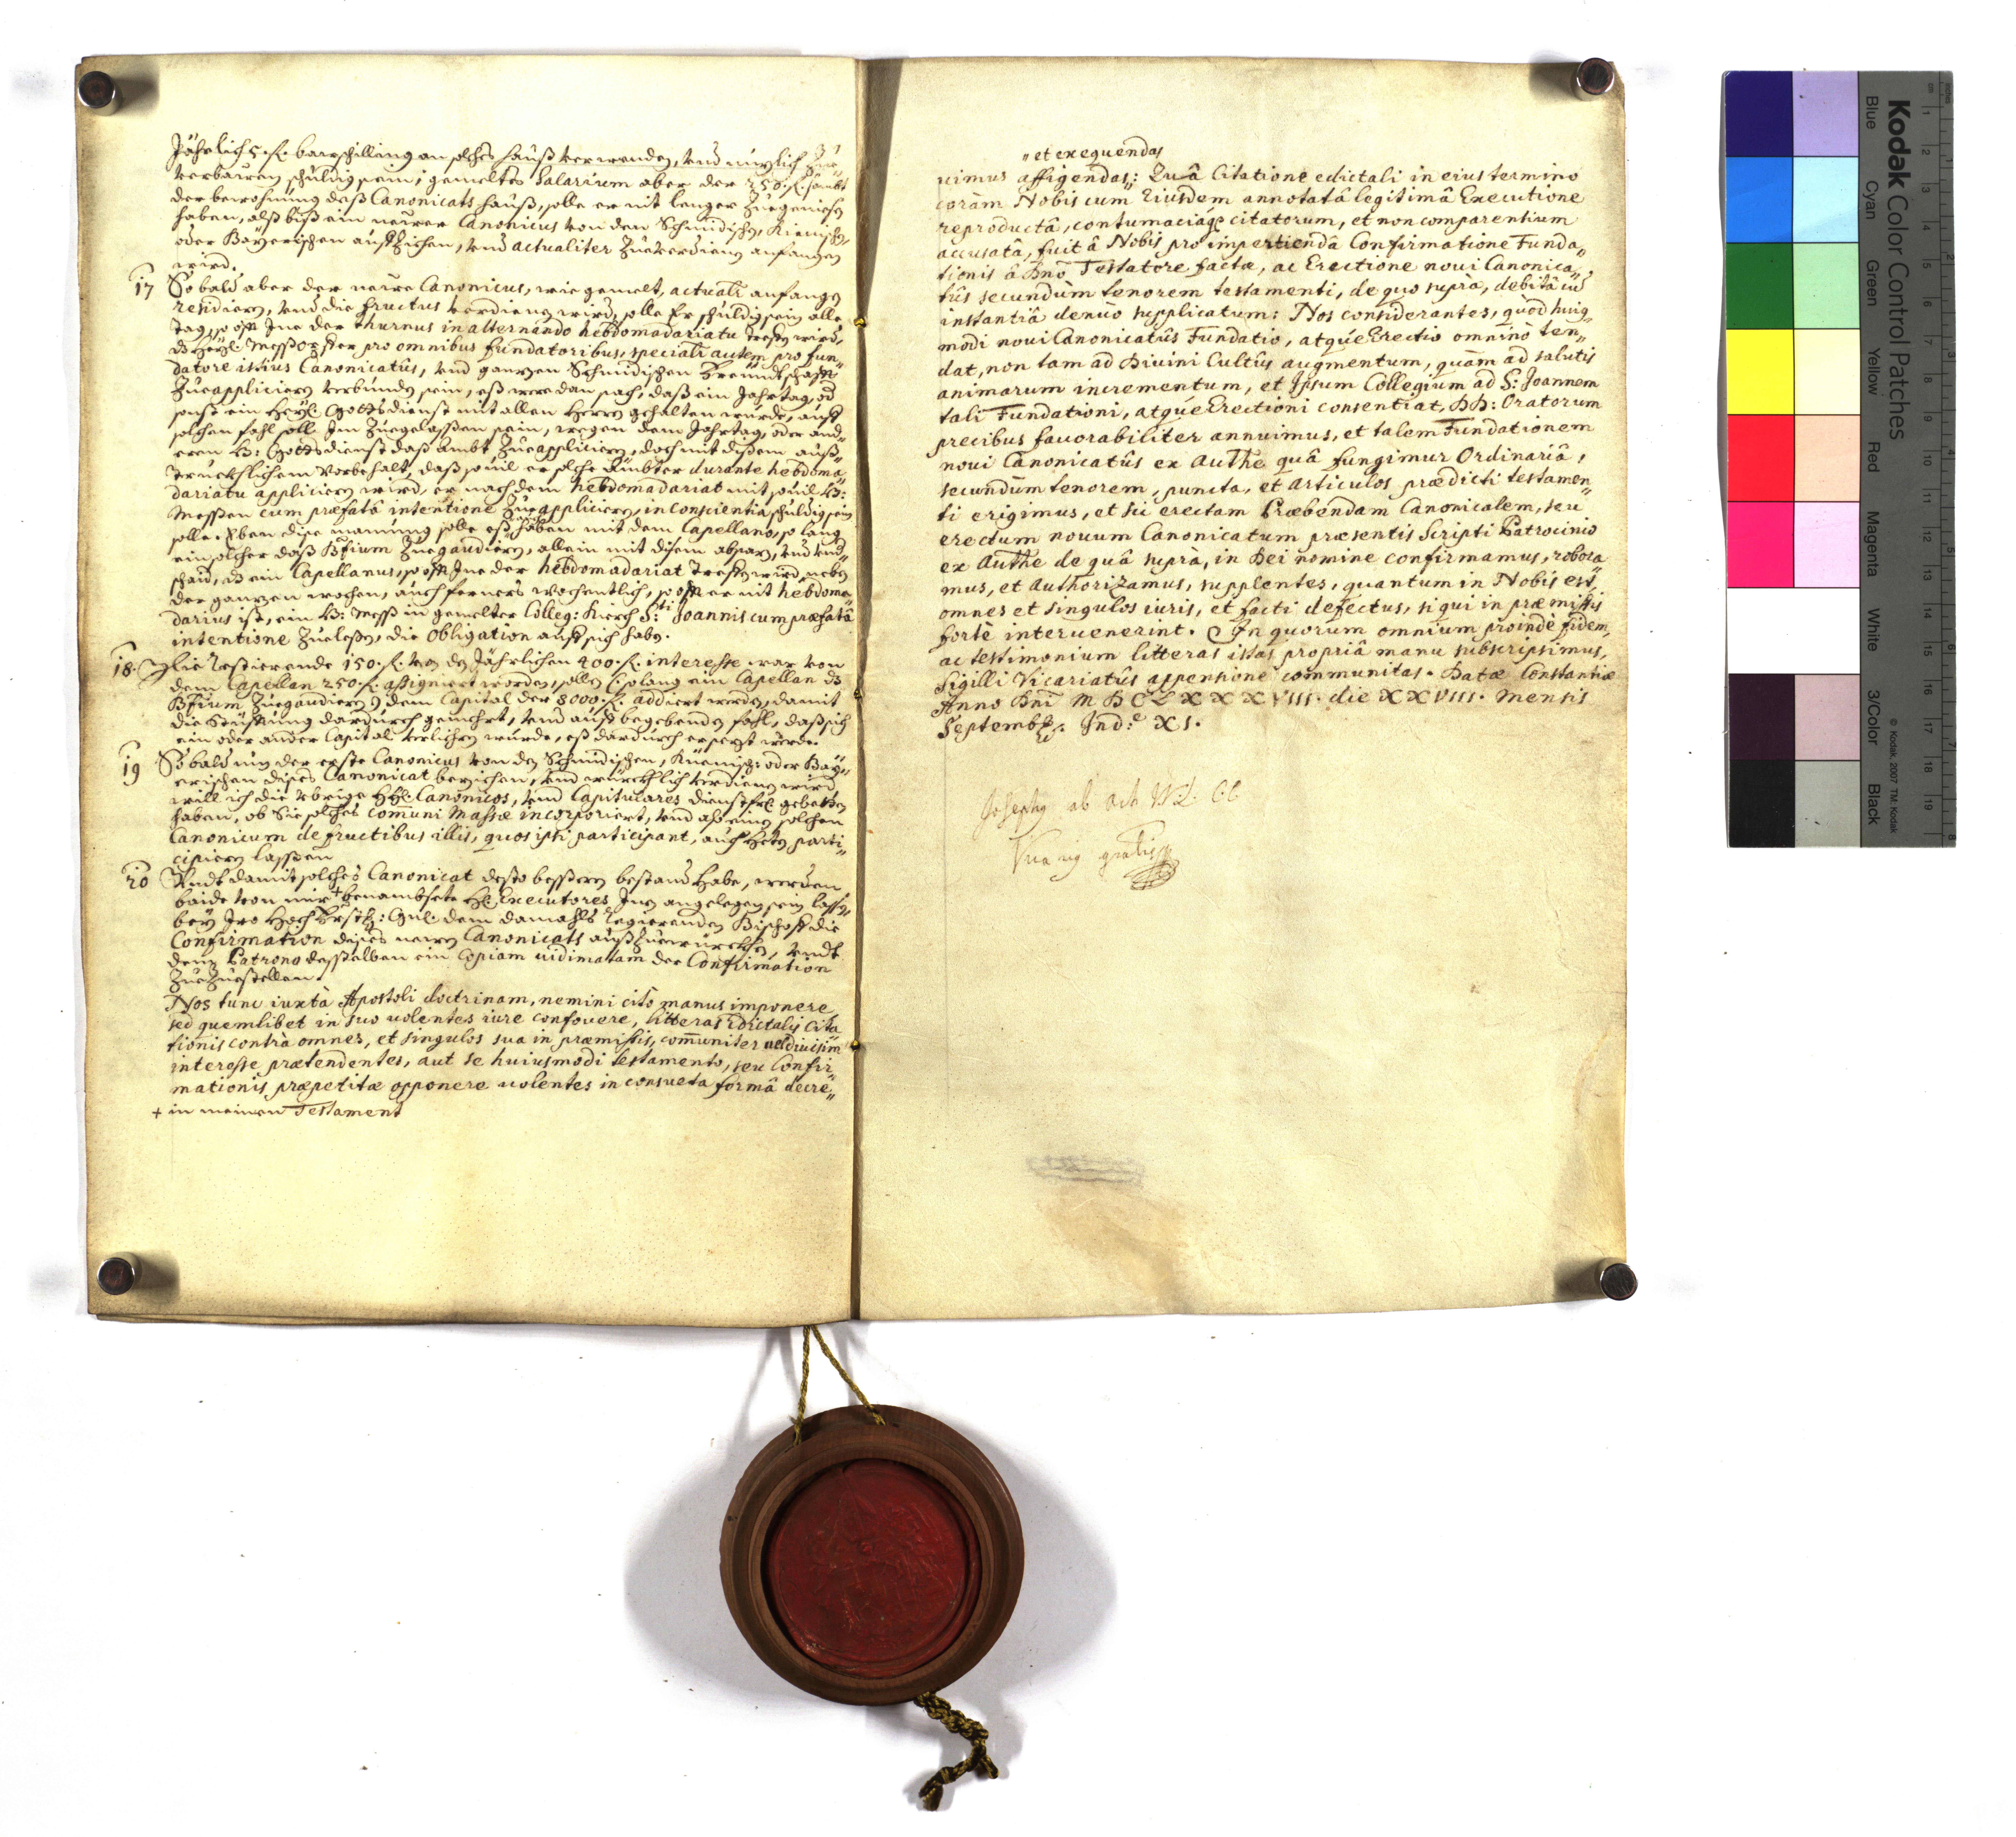 Jährlich 5. fl. bawschilling an solches hauß verwenden, vnd nuzlich Zue„
verbawen schuldig sein; gemeltes Salarium aber der 250. fl. sambt
der bewohnung daß Canonicats hauß, solle er nit lenger Zuegeniesen
haben, alß biß ein newer Canonicus von den Schmidischen, Kienischen,
oder Bayerischen aufZiehen, vnd actualiter Zueverdienen anfangen
wird.
17 So bald aber der newe Canonicus, wie gemelt, actuali anfangen
residiern, vnd die fructus verdienen wird, solle Er schuldig sein alle
tag, so offt Jne der thurnus in alternando hebdomadariatu treffen wird,
dz heyl. Messopffer pro omnibus fundatoribus, speciali autem pro fun„
datore istius Canonicatûs, vnd ganzen Schmidischen Freundtschafft
Zueappliciern verbunden sein, eß were dan sach, daß ein Jahrtag, od
sonst ein Heyl. Gottsdienst mit allen Herren gehalten wurde, auff
solchen fahl soll Jm Zuegelassen sein, wegen dem Jahrtag, oder and„
eren H: Gottsdienst daß ambt Zueappliciern, doch mit disem auß„
truckhlichem Vorbehalt, daß souil er solche Ämbter durante hebdoma„
dariatu appliciern wird, er nach dem hebdomadariat mit souil H:
Messen cum præfatâ intentione Zueappliciern, in conscientia schuldig sein
solle. Eben dise mainung solle eß haben mit dem Capellano, so lang
ein solcher daß Bfium Zuegaudiern, allein mit disem absaz, vnd vnd„
schaid, dz ein Capellanus, so offt Jne der hebdomadariat treffen wird, neben
der ganzen wochen, auch ferners wochentlich, so offt er nit hebdoma„
darius ist, ein H: Mess in gemelter Colleg: Kirch S:ti Joannis cum præfatâ
intentione Zuelesen, die Obligation auff sich habe.
18. Die restierende 150. fl. von den Jährlichen 400. fl. interesse war von
dem Capellan 250. fl. assigniert worden, sollen (solang ein Capellan dz
Bfium Zuegaudiern) dem Capital der 8000. fl. addiert werden, damit
die Stüfftung dardurch gemehrt, vnd auff begebenden fahl, daß sich
ein oder ander Capital verliehren wurde, eß dardurch ersezt werde.
19 So bald nun der erste Canonicus von den Schmidischen, Küenisch: oder Bay„
erischen dises Canonicat beziehen, vnd würckhlich verdienen wird
will ich die vbrige HH. Canonicos, vnd Capitulares dienstfrl. gebetten
haben, ob Sie solches communi Massæ incorporiert, vnd alß einen solchen
Canonicum de fructibus illis, quos ipsi participant, auch theten parti„
cipiern lassen
20 Vndt damit solches Canonicat desto bessern bestand habe, werden
baide von mir + benambsete HH. Executores Jnen angelegen sein lassen,
bey Jro Hoch Frstl: Gnl: dem damahls regierenden Bischoff die
Confirmation dises newen Canonicats außZuewürckhen, vndt
dem Patrono desselben ein Copiam uidimatam der Confirmation
ZueZuestellen.
Nos tunc iuxtà Apostoli doctrinam, nemini citò manus imponere
sed quemlibet in suo uolentes iure confouere, litteras Edictalis Cita
tionis contrà omnes, et singulos sua in præmissis, com̄uniter uel diuisim
interesse prætendentes, aut se huiusmodi testamento, seu Confir„
mationis præpetitæ opponere uolentes in consueta formâ decre„
+ in meinem Testament
„ et exequendas
uimus affigendas„: Quâ Citatione edictali in eius termino
coràm Nobis cum Eiusdem annotatâ legitimâ Executione
reproductâ, contumaciâq̃ citatorum, et non comparentium
accusatâ, fuit â Nobis pro impertiendâ Confirmatione Funda„
tionis â Dno Testatore factæ, ac Erectione noui Canonica„
tûs secundùm tenorem testamenti, de quo suprà, debitâ cu͂
instantiâ denuò supplicatum: Nos considerantes, quòd huiq
modi noui Canonicatûs Fundatio, atque Erectio omninò ten„
dat, non tam ad Diuini Cultûs augmentum, quàm ad salutis
animarum incrementum, et Ipsum Collegium ad S: Joannem
tali Fundationi, atque Erectioni consentiat, DD: Oratorum
precibus fauorabiliter annuimus, et talem Fundationem
noui Canonicatûs ex Authe quâ fungimur Ordinariâ,
secundùm tenorem, puncta, et articulos prædicti testamen„
ti erigimus, et sic erectam Præbendam Canonicalem, seu
erectum nouum Canonicatum præsentis Scripti Patrocinio
ex Authe de quâ suprà, in Dei nomine confirmamus, robora„
mus, et Authorizamus, supplentes, quantum in Nobis est,
omnes et singulos iuris, et facti defectus, si qui in præmissis
fortè interuenerint. In quorum omnium proindè fidem,
ac testimonium litteras istas propriâ manu subscripsimus,
Sigilli Vicariatûs appensione communitas. Datæ Constantiæ
Anno Dnī MDCLXXXVIII. die XXVIII. mensis
Septembr. Ind:e XI.
Josephus ab Ach
Vicarius gnalis
Kodak Color Control Patches
Blue Cyan Green Yellow Red Magenta White 3/Color Black
© Kodak, 2007 TM: Kodak
cm 1 2 3 4 5 6 7 8 9 10 11 12 13 14 15 16 17 18 19
inches 1 2 3 4 5 6 7 8